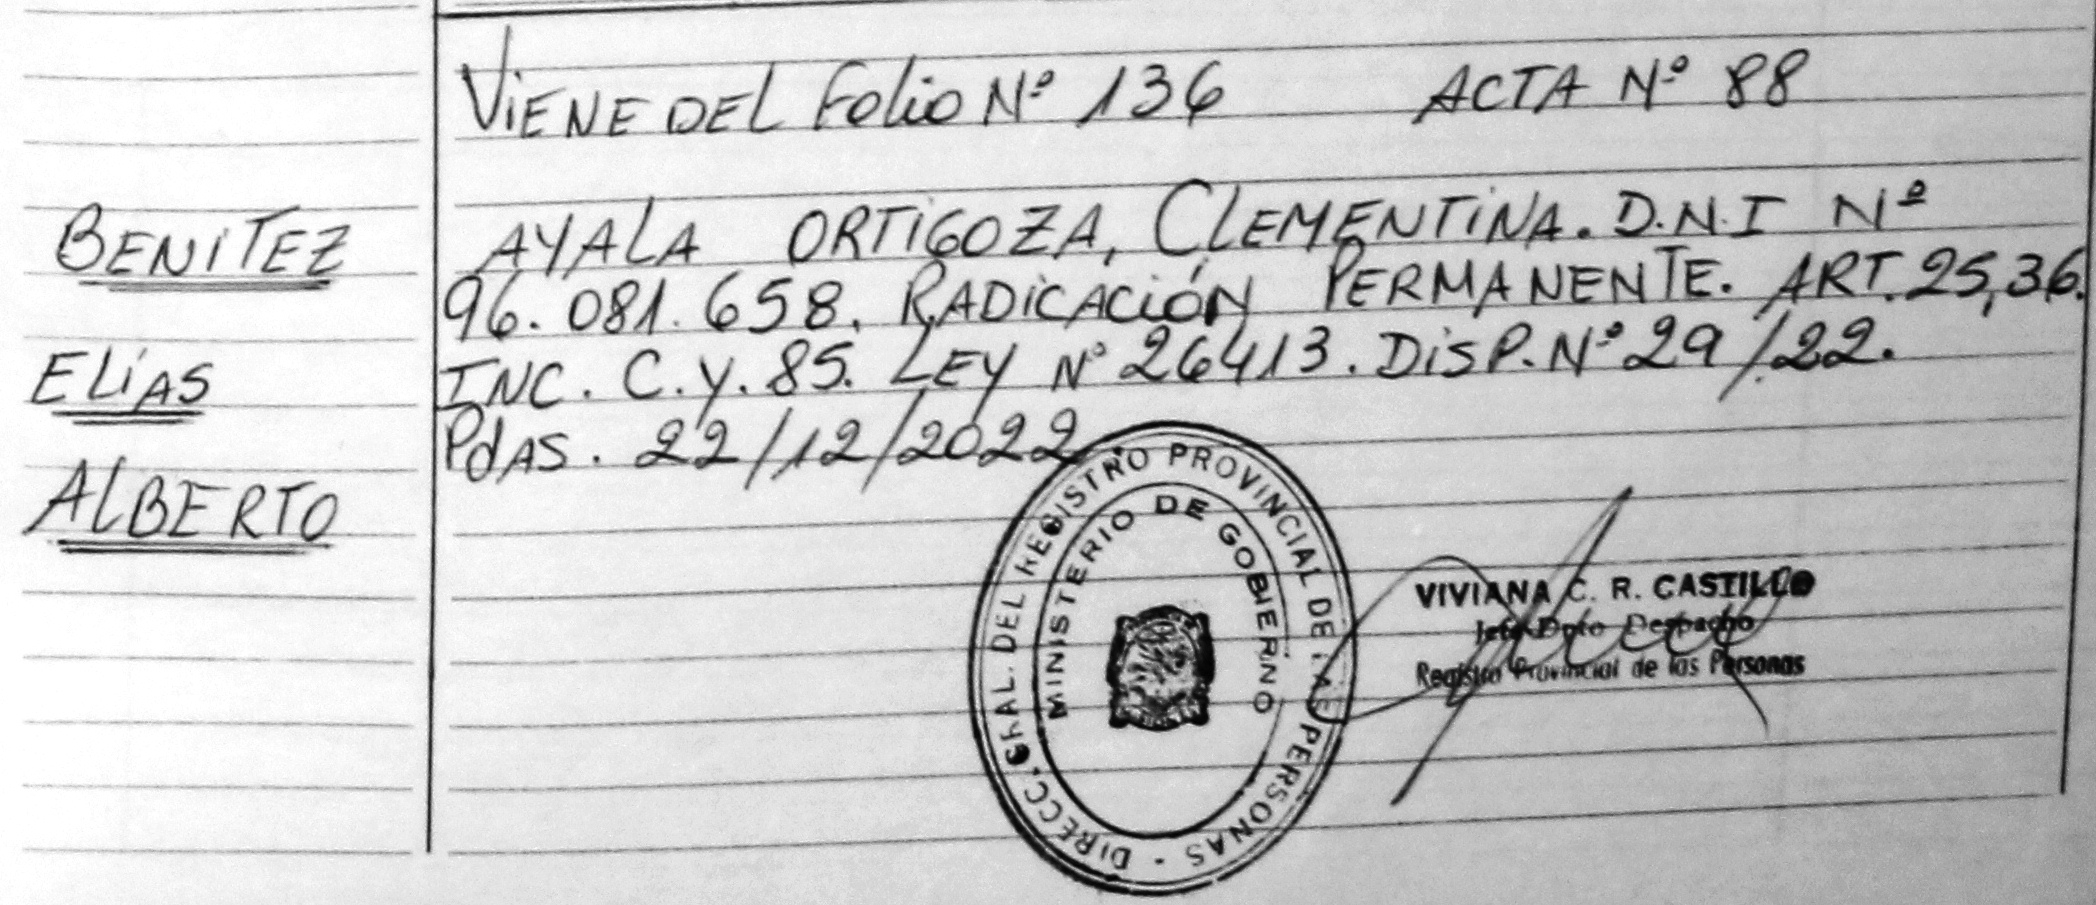 VIENE DEL Folio Nº 136 ACTA Nº 88
BENITEZ
ELIAS
ALBERTO
AYALA ORTIGOZA, CLEMENTINA. D.N.I Nº
96.081.658. RADICACIÓN PERMANENTE. ART. 25,36.
INC. C.Y. 85. LEY Nº 26413. DISP. Nº 29/22.
PdAS. 22/12/2022
DIRECC. GRAL. DEL REGISTRO PROVINCIAL DE LAS PERSONAS -
MINISTERIO DE GOBIERNO
VIVIANA C. R. CASTILLO
Jefe Dpto Despacho
Registro Provincial de las Personas